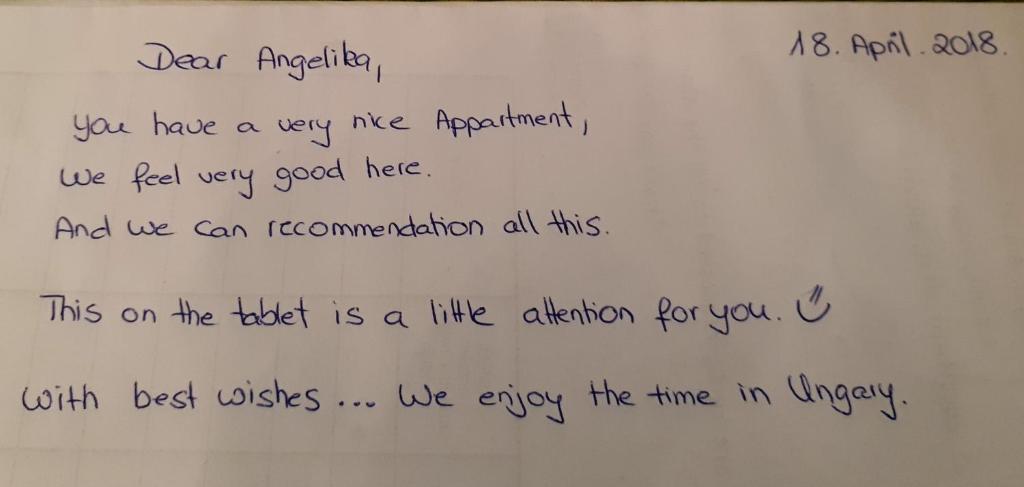 18. April. 2018.
Dear Angelika,
you have a very nice Appartment,
We feel very good here.
And we can recommendation all this.
This on the tablet is a little attention for you.
With best wishes... We enjoy the time in Ungary.